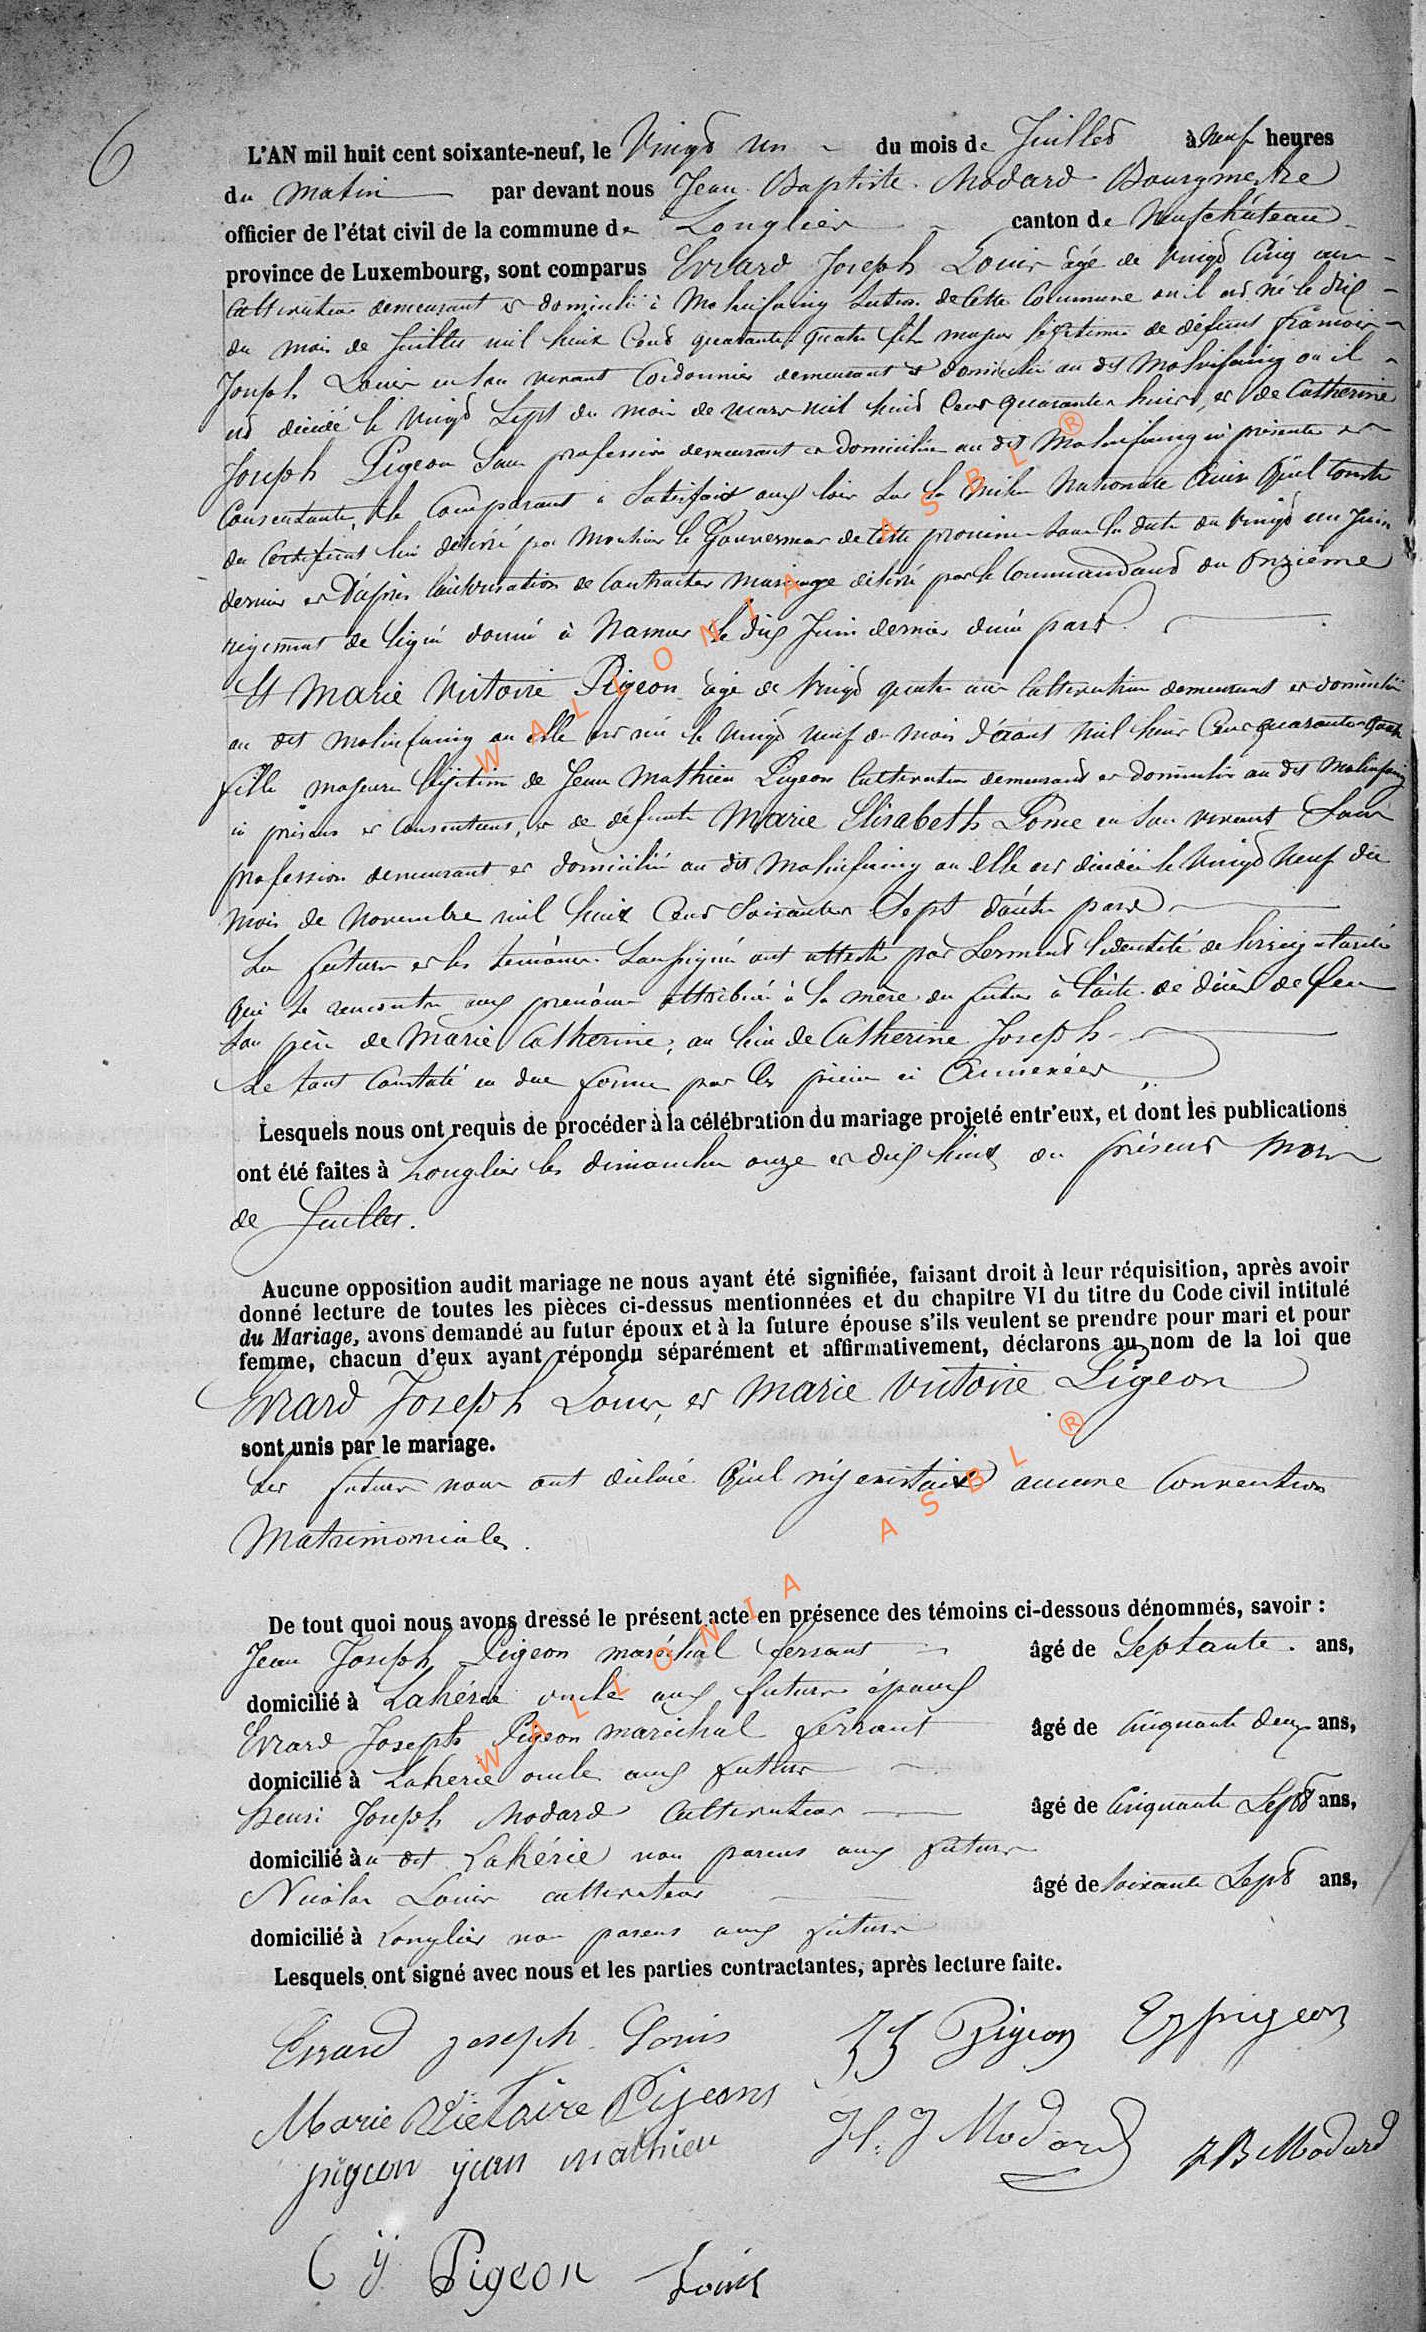 6
L'AN mil huit cent soixante-neuf, le Vingt un du mois de Juillet à neuf heures
du matin par devant nous Jean Baptiste Modard Bourgmestre
officier de l'état civil de la commune de Longlier canton de Neufchâteau
province de Luxembourg, sont comparus Evrard Joseph Louis âgé de Vingt Cinq ans
Cultivateur demeurant et domicilié à Molinfaing section de Cette Commune où il est né le dix
du mois de Juillet mil huit Cent quarante quatre fils majeur légitime de défunt François
Joseph Louis en son vivant Cordonnier demeurant et domicilié au dit Molinfaing où il
est décédé le vingt Sept du mois de mars mil huit Cent quarante huit, et de Catherine
Joseph Pigeon Sans profession demeurant et domiciliée au dit Molinfaing ici présente et
Consentante, le Comparant a Satisfait aux lois sur la milice Nationale Ainsi Qu'il Conste
du Certificat lui délivré par Monsieur le Gouverneur de Cette province sous la date du Vingt un Juin
dernier et D'après L'autorisation de Contracter Mariage délivré par le Commandant du Onzième
régiment de ligne donné à Namur le dix Juin dernier d'une part.
Et Marie Victoire Pigeon âgé de Vingt quatre ans Cultivatrice demeurant et domiciliée
au dit molinfaing où Elle est née le Vingt neuf du mois d'août mil huit Cent quarante quatre
fille majeure légitime de Jean Mathieu Pigeon Cultivateur demeurant et domicilié au dit Molinfaing
ici présent et Consentant, et de défunte Marie Elisabeth Pome en son vivant Sans
profession demeurant et domiciliée au dit Molinfaing où Elle est décédée le Vingt Neuf du
mois de Novembre mil huit Cent Soixante Sept d'autre part
Les futurs et les témoins Soussignés ont attesté par Serment l'identité de
Qui se rencontre aux prénoms attribués à la mère du futur à l'acte de décès de feu
son père de Marie Catherine, au lieu de Catherine Joseph
Le tout Constaté en due forme par les pièces ci Annexées
Lesquels nous ont requis de procéder à la célébration du mariage projeté entr'eux, et dont les publications
ont été faites à Longlier les dimanches onze et dix huit du présent mois
de Juillet.
Aucune opposition audit mariage ne nous ayant été signifiée, faisant droit à leur réquisition, après avoir
donné lecture de toutes les pièces ci-dessus mentionnées et du chapitre VI du titre du Code civil intitulé
du Mariage, avons demandé au futur époux et à la future épouse s'ils veulent se prendre pour mari et pour
femme, chacun d'eux ayant répondu séparément et affirmativement, déclarons au nom de la loi que
Evrard Joseph Louis, et Marie Victoire Pigeon
sont unis par le mariage.
Les futurs nous ont déclaré Qu'il n'y existait aucune Convention
Matrimoniale.
De tout quoi nous avons dressé le présent acte en présence des témoins ci-dessous dénommés, savoir :
Jean Joseph Pigeon maréchal ferrant âgé de Septante ans,
domicilié à Lahérie oncle aux futurs époux
Evrard Joseph Pigeon maréchal ferrant âgé de Cinquante deux ans,
domicilié à Lahérie oncle aux futurs
Henri Joseph Modard Cultivateur âgé de Cinquante Sept ans,
domicilié à u dit Lahérie non parent aux futurs
Nicolas Louis cultivateur âgé de soixante Sept ans,
domicilié à Longlier non parent aux futurs
Lesquels ont signé avec nous et les parties contractantes, après lecture faite.
Evrard Joseph Louis JJ Pigeon EJ pigeon
Marie Victoire Pigeons H. J Modard JB Modard
pigeon jean mathieu
C J Pigeon Louis
WALLONIA ASBL ®
WALLONIA ASBL ®